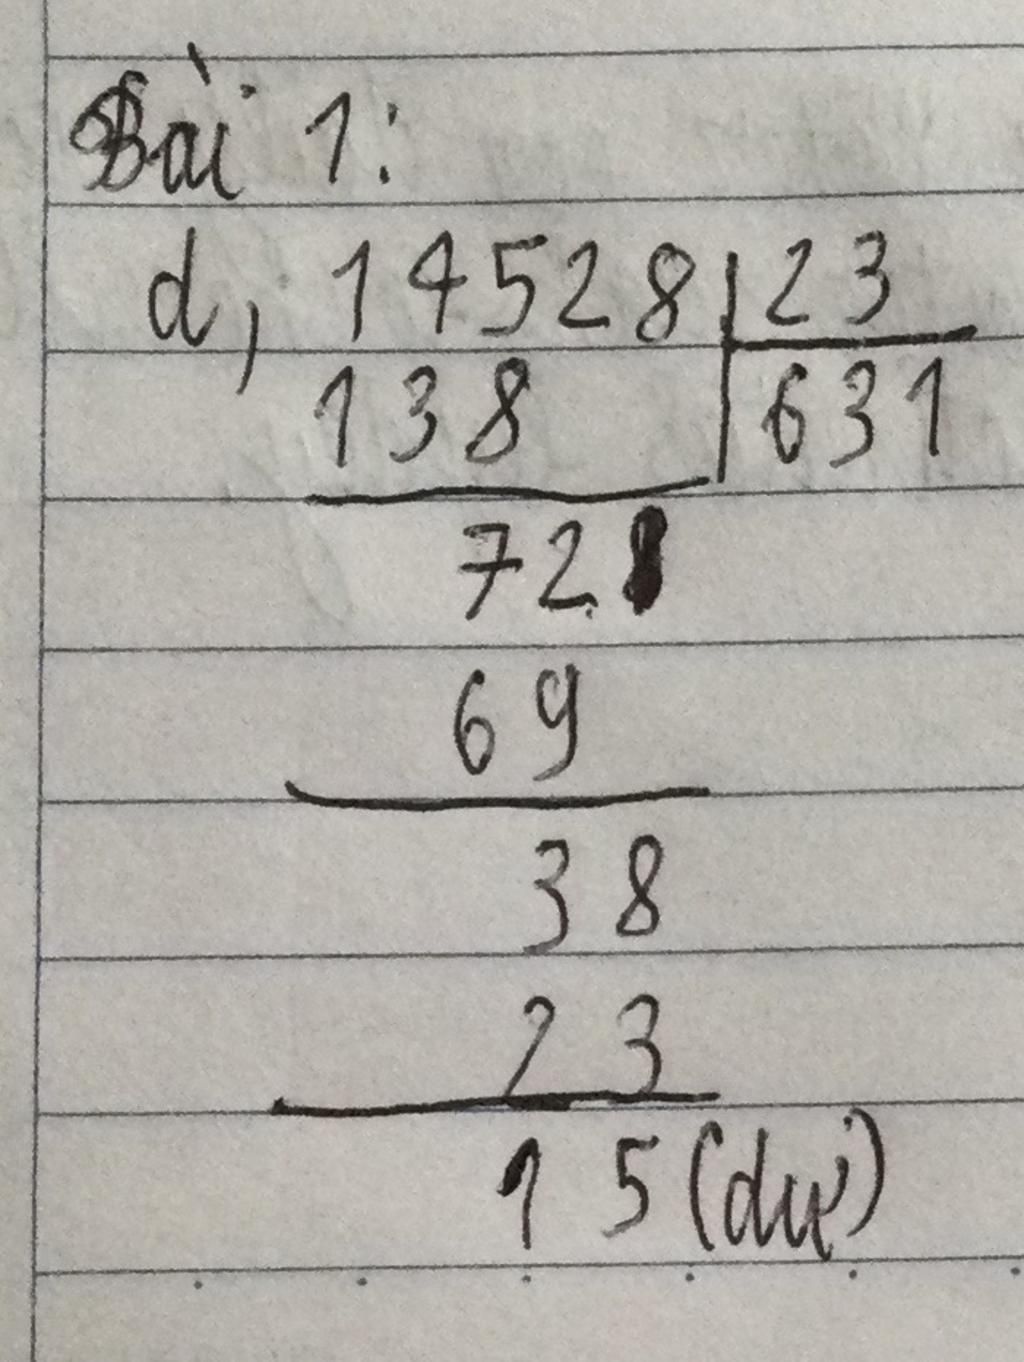 Bài 1:
d, 14528 23
138 631
72
69
38
23
15 (dư)